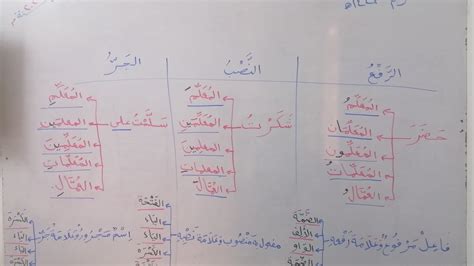 الرَّفْعُ النَّصْبُ الجَرُّ
حَضَرَ
المُعَلِّمُ
المُعَلِّمَانِ
المُعَلِّمُونَ
المُعَلِّمَاتُ
العُمَّالُ
شَكَرْتُ
المُعَلِّمَ
المُعَلِّمَيْنِ
المُعَلِّمِينَ
المُعَلِّمَاتِ
العُمَّالَ
سَلَّمْتُ عَلَى
المُعَلِّمِ
المُعَلِّمَيْنِ
المُعَلِّمِينَ
المُعَلِّمَاتِ
العُمَّالِ
فَاعِلٌ مَرْفُوعٌ وَعَلَامَةُ رَفْعِهِ
الضَّمَّةُ
الأَلِفُ
الوَاوُ
مفعول منصوب وعلامة نصبه
الفَتْحَةُ
اليَاءُ
اليَاءُ
الكَسْرَةُ
اِسْمٌ مَجْرُورٌ وَعَلَامَةُ جَرِّهِ
الكَسْرَةُ
اليَاءُ
اليَاءُ